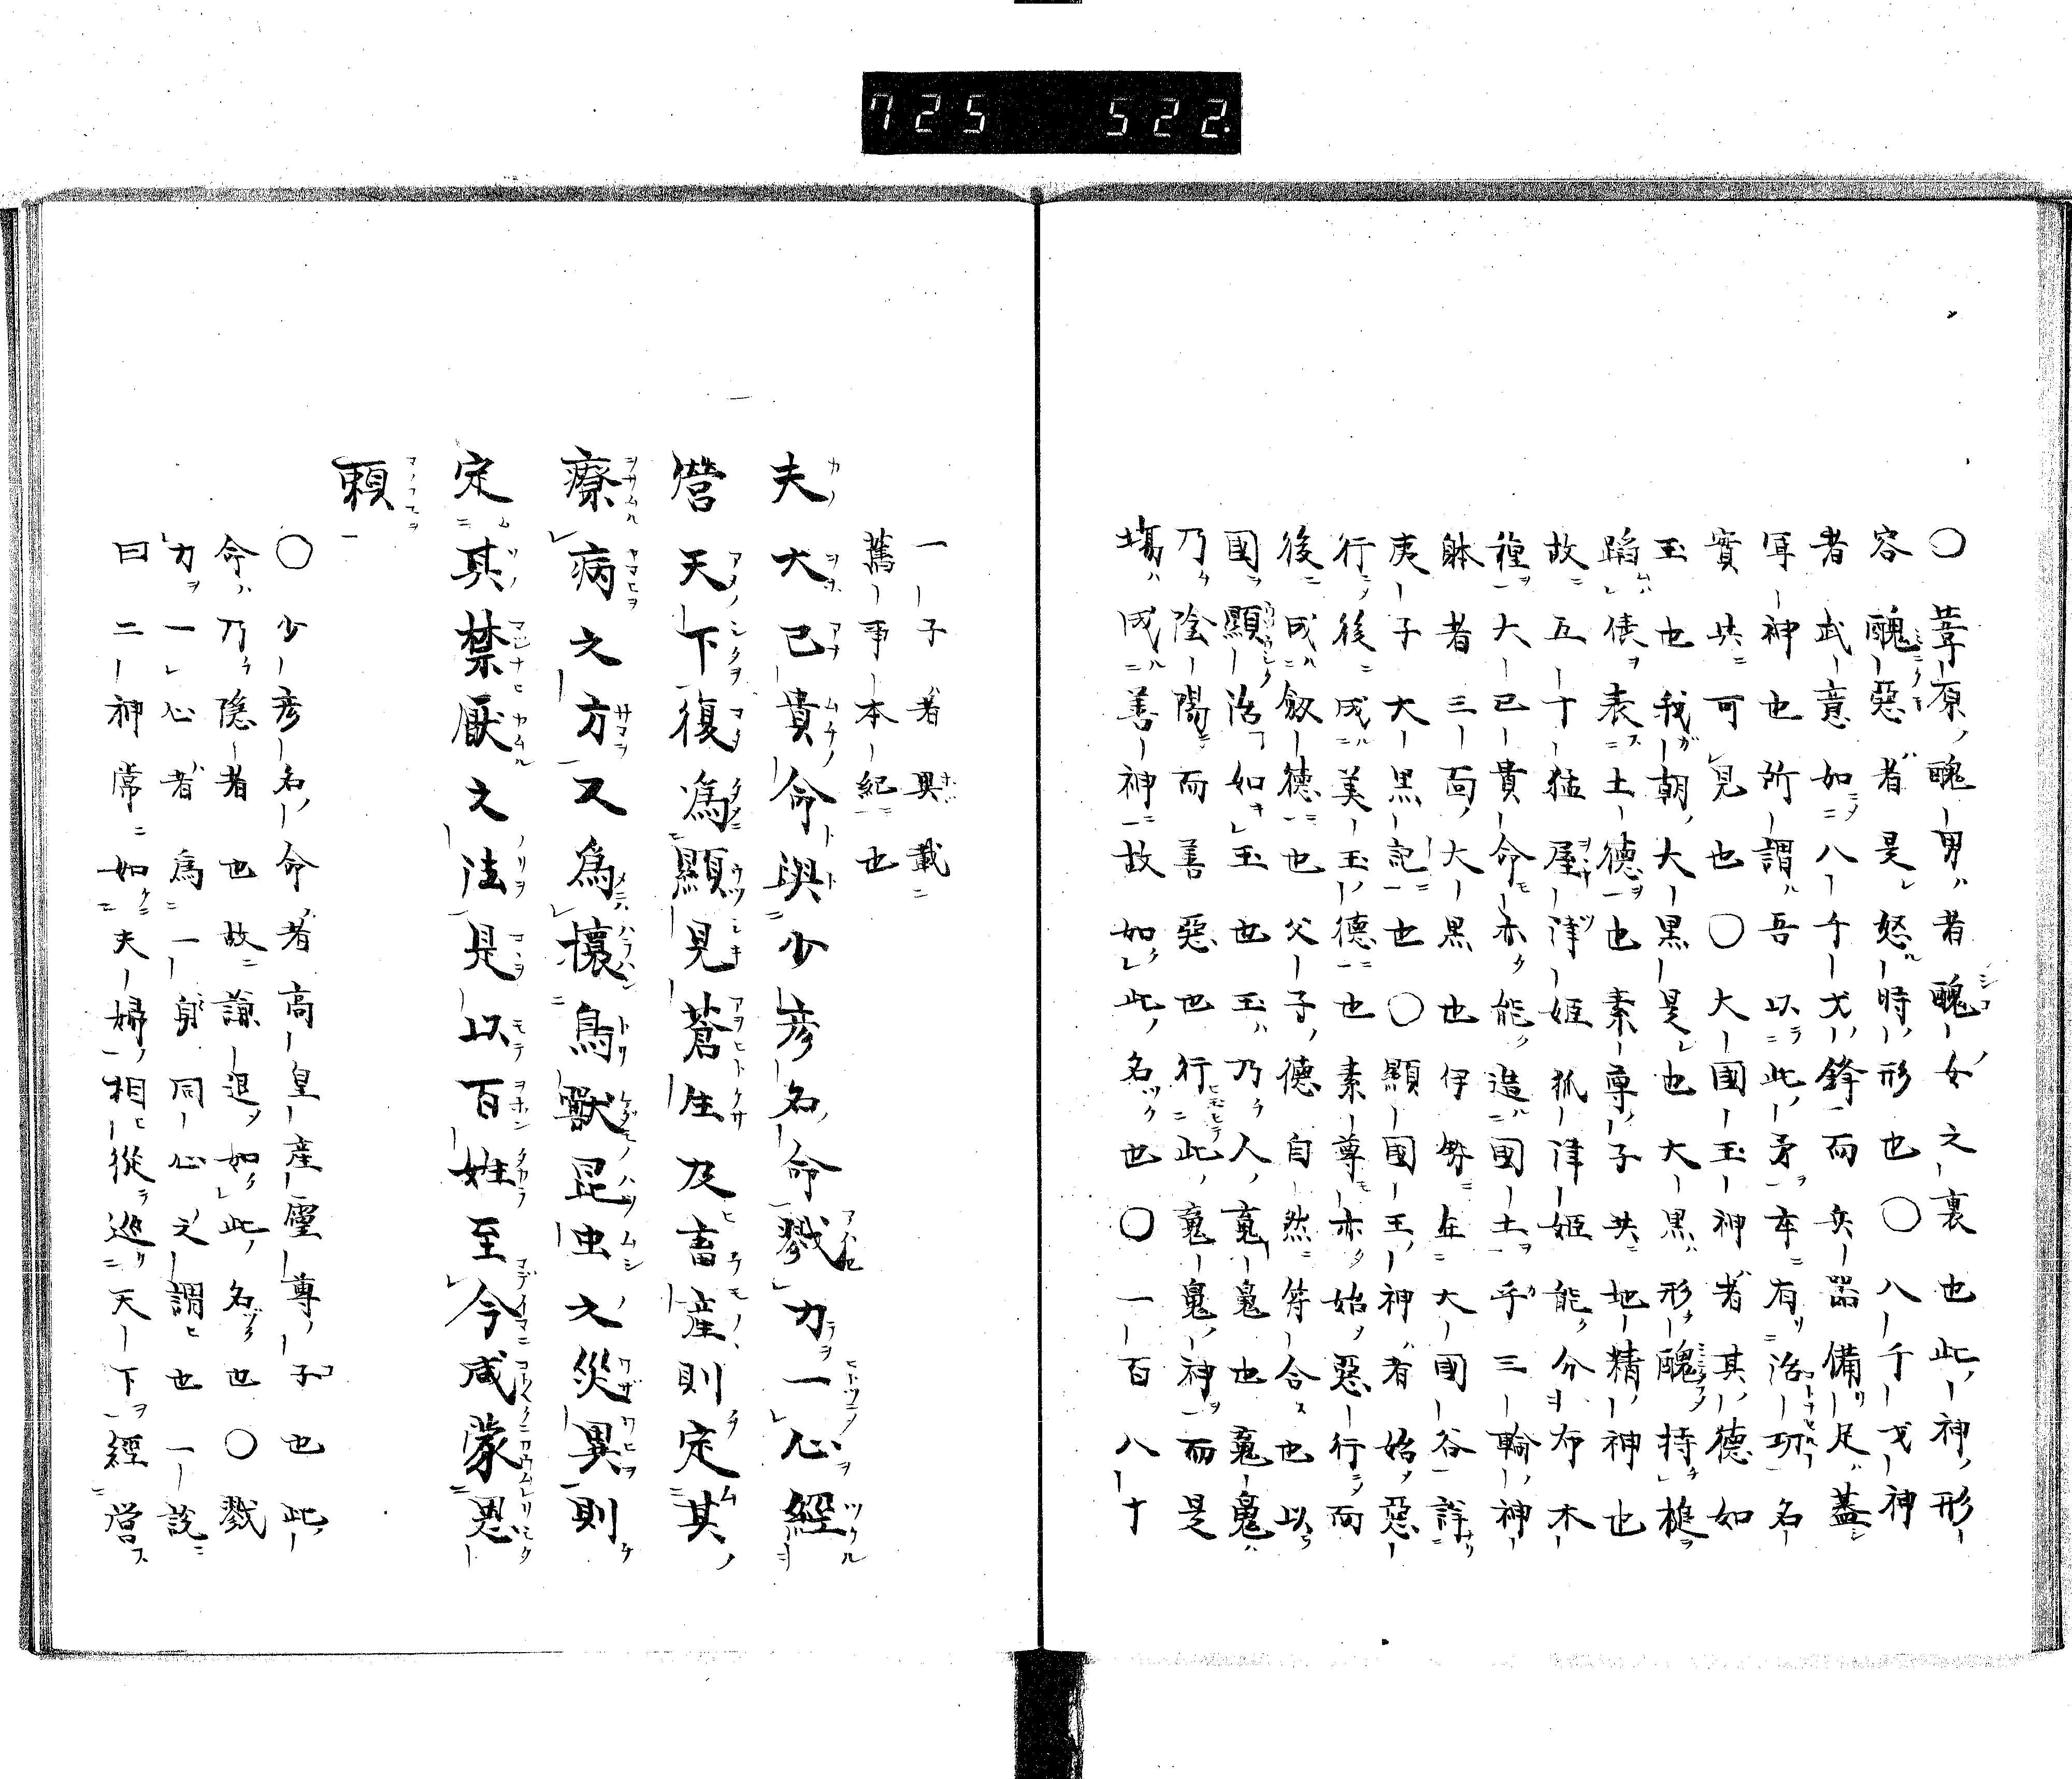 725 522.
○葦原醜男者醜女之裏也此神形
容醜惡者是怒時形也○八千戈神
者武意如八千戈鋒而兵器備足蓋
軍神也所謂吾以此矛卒有治功名
實共可見也○大國玉神者其德如
玉也我朝大黒是也大黒形醜持槌
蹈俵表土德也素尊子共地精神也
故五十猛屋津姫抓津姫能分布木
種大己貴命亦能造國土乎三輪神
躰者三面大黒也伊勢在大國谷詳
夷子大黒記也○顯國玉神者始惡
行後成美玉德也素尊亦始惡行而
後成叙德也父子德自然符合也以
國顯治如玉也玉乃人䰟鬼也䰟鬼
乃陰陽而善惡也行此䰟鬼神而是
塲成善神故如此名也○一百八十
一子者與載
舊事本紀也
夫大己貴命與少彦名命戮力一心經
營天下復爲顯見蒼生及畜産則定其
療病之方又爲攘鳥獸昆虫之災異則
定其禁厭之法是以百姓至今咸蒙恩
頼
○少彦名命者高皇産靈尊子也此
命乃隱者也故謙退如此名也○戮
力一心者爲一身同心之謂也一説
曰二神常如夫婦相從巡天下經營